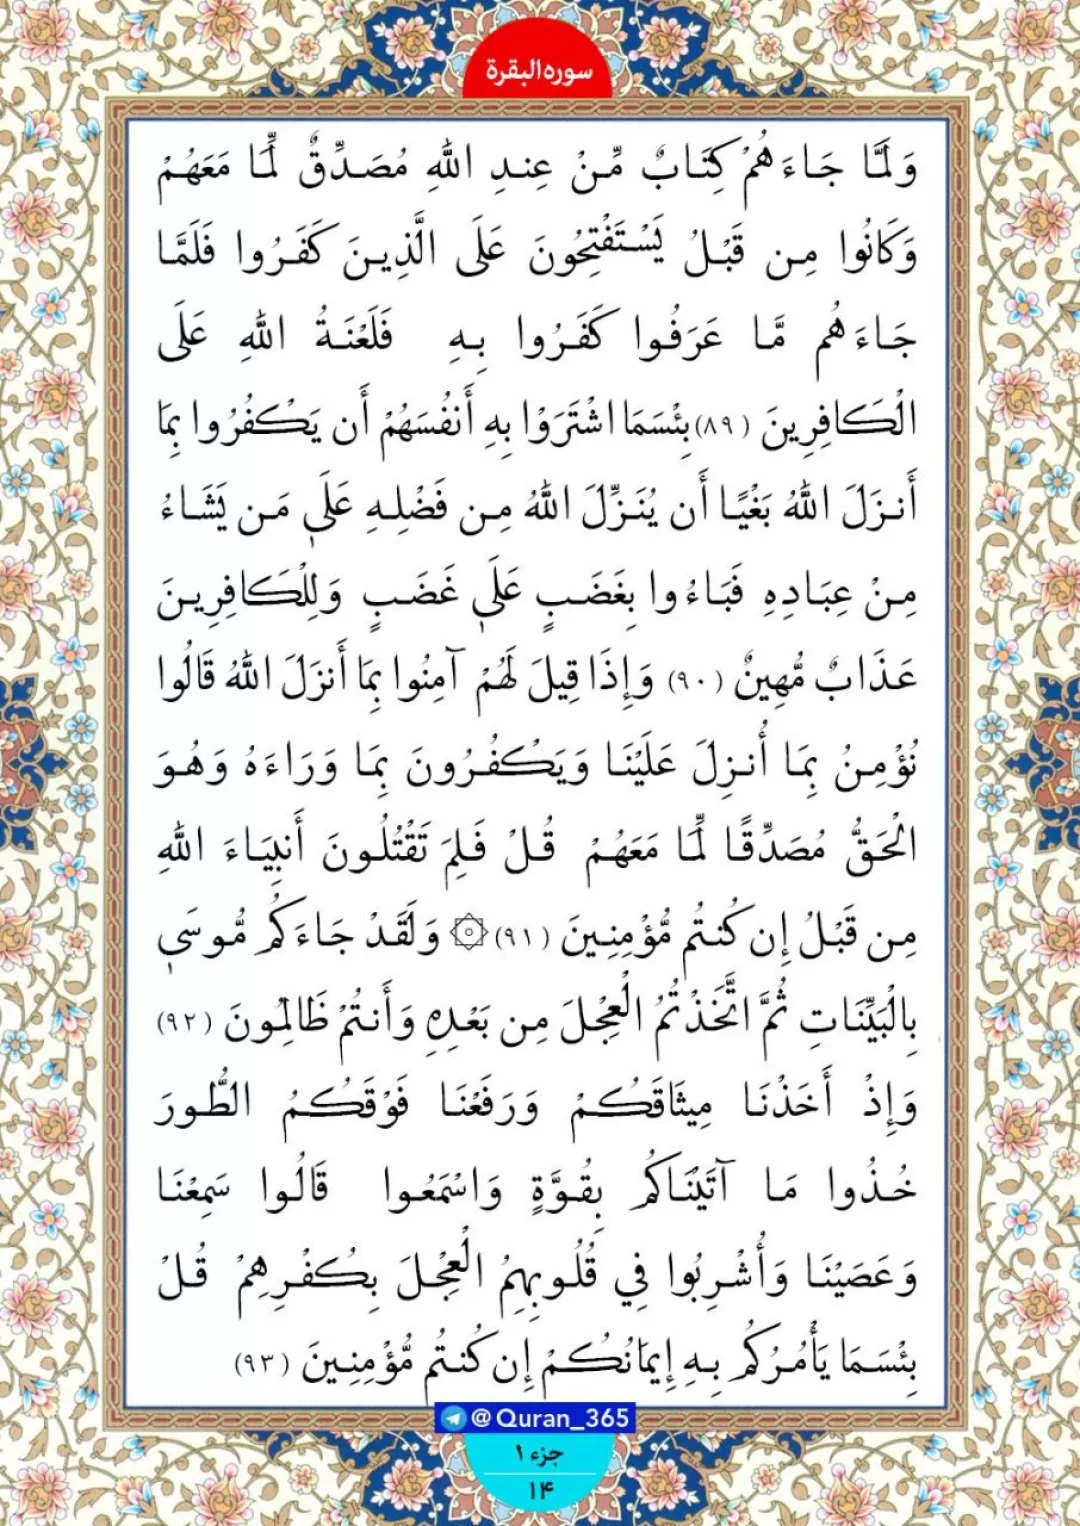 سوره البقرة
وَلَمَّا جَاءَهُمْ كِتَابٌ مِّنْ عِندِ اللَّهِ مُصَدِّقٌ لِّمَا مَعَهُمْ
وَكَانُوا مِن قَبْلُ يَسْتَفْتِحُونَ عَلَى الَّذِينَ كَفَرُوا فَلَمَّا
جَاءَهُم مَّا عَرَفُوا كَفَرُوا بِهِ فَلَعْنَةُ اللَّهِ عَلَى
الْكَافِرِينَ (۸۹) بِئْسَمَا اشْتَرَوْا بِهِ أَنفُسَهُمْ أَن يَكْفُرُوا بِمَا
أَنزَلَ اللَّهُ بَغْيًا أَن يُنَزِّلَ اللَّهُ مِن فَضْلِهِ عَلَى مَن يَشَاءُ
مِنْ عِبَادِهِ فَبَاءُوا بِغَضَبٍ عَلَى غَضَبٍ وَلِلْكَافِرِينَ
عَذَابٌ مُّهِينٌ (۹۰) وَإِذَا قِيلَ لَهُمْ آمِنُوا بِمَا أَنزَلَ اللَّهُ قَالُوا
نُؤْمِنُ بِمَا أُنزِلَ عَلَيْنَا وَيَكْفُرُونَ بِمَا وَرَاءَهُ وَهُوَ
الْحَقُّ مُصَدِّقًا لِّمَا مَعَهُمْ قُلْ فَلِمَ تَقْتُلُونَ أَنبِيَاءَ اللَّهِ
مِن قَبْلُ إِن كُنتُم مُّؤْمِنِينَ (۹۱) ۞ وَلَقَدْ جَاءَكُم مُّوسَى
بِالْبَيِّنَاتِ ثُمَّ اتَّخَذْتُمُ الْعِجْلَ مِن بَعْدِهِ وَأَنتُمْ ظَالِمُونَ (۹۲)
وَإِذْ أَخَذْنَا مِيثَاقَكُمْ وَرَفَعْنَا فَوْقَكُمُ الطُّورَ
خُذُوا مَا آتَيْنَاكُم بِقُوَّةٍ وَاسْمَعُوا قَالُوا سَمِعْنَا
وَعَصَيْنَا وَأُشْرِبُوا فِي قُلُوبِهِمُ الْعِجْلَ بِكُفْرِهِمْ قُلْ
بِئْسَمَا يَأْمُرُكُم بِهِ إِيمَانُكُمْ إِن كُنتُم مُّؤْمِنِينَ (۹۳)
@Quran_365
جزء ۱
۱۴